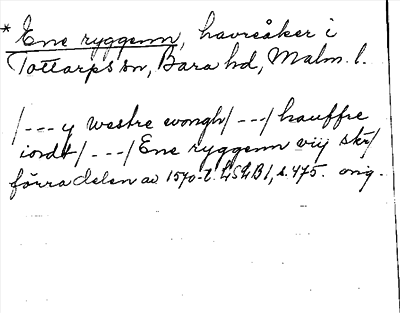 * Ene ryggenn, havreåker i
Tottarps sn, Bara hd, Malm. l.
/--- y westre wongh/ ---/ hauffre
iordt/ ---/ Ene ryggenn viij skr/
förra delen av 1570-t. LSLB I, s. 475. orig.